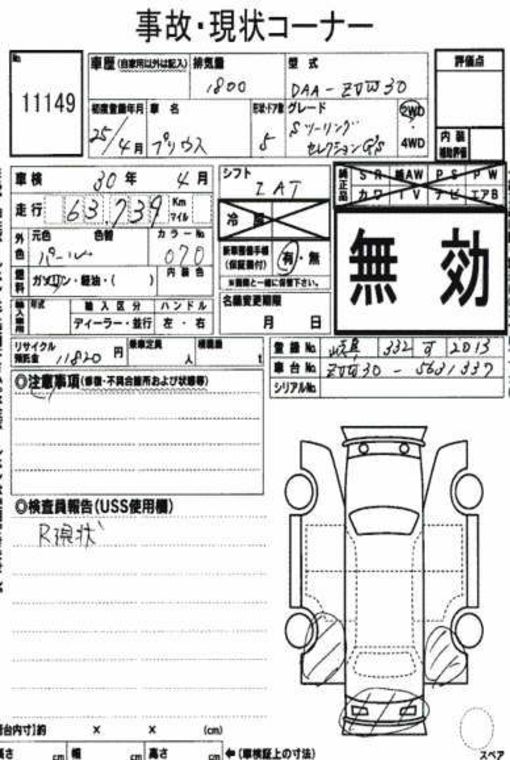 事故・現状コーナー
No
11149
車歴 (自家用以外は記入)
排気量
1800
型式
DAA-ZVW30
評価点
初度登録年月
25年/4月
車名
プリウス
形状・ドア数
5
グレード
Sツーリング
セレクションG's
2WD
・
4WD
内装
補助評価
車検 30年 4月
シフト
IAT
純正品
SR 純AW PS PW
カワ TV ナビ エアB
走行 63,739 Km マイル
冷
無効
外色
元色
パール
色替
カラーNo
070
新車整備手帳
(保証書付)
有・無
※書類と一緒に保管下さい。
燃料
ガソリン・軽油・( )
内装色
輸入車用
年式
輸入区分
ディーラー・並行
ハンドル
左・右
名義変更期限
月 日
リサイクル
預託金
11820円
乗車定員
人
積載量
t
登録No 岐阜 332 す 2013
車台No ZVW30-5631337
シリアルNo
◎注意事項(修復・不具合箇所および状態等)
◎検査員報告(USS使用欄)
R現状
荷台内寸】約 × × (cm)
長さ cm 幅 cm 高さ cm ←(車検証上の寸法)
スペア